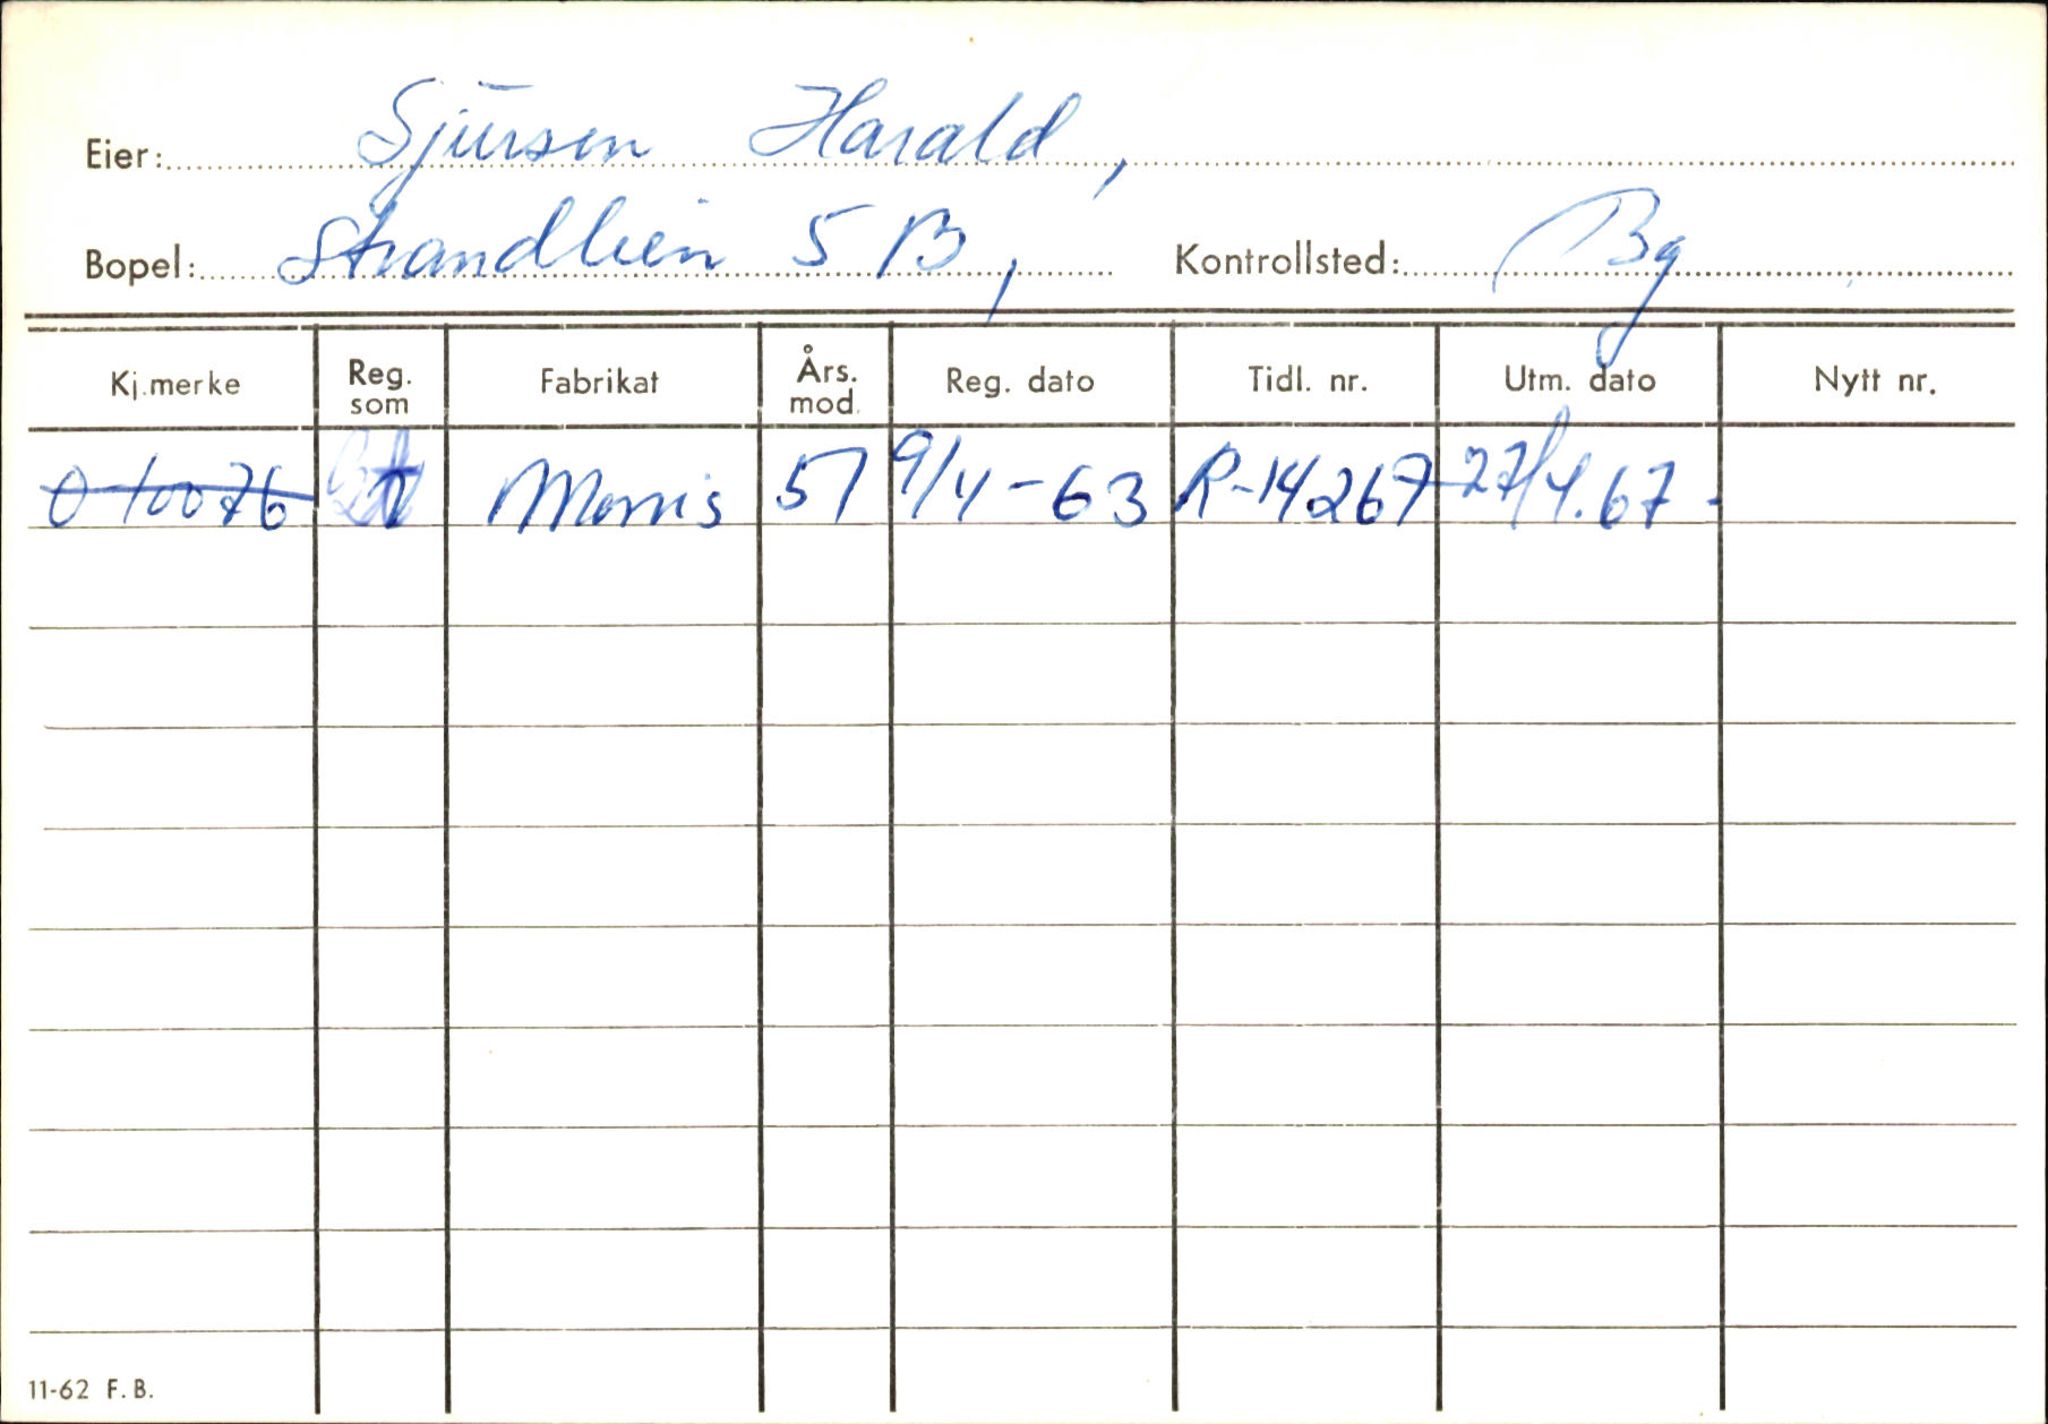 Eier: Sjūrsen Harald,
Bopel: Strandlien 5 B, Kontrollsted: Bg
Kj.merke Reg. som Fabrikat Års. mod. Reg. dato Tidl. nr. Utm. dato Nytt nr.
O 10076 Morris 57 9/4-63 R-14267 27/4.67-
11-62 F.B.